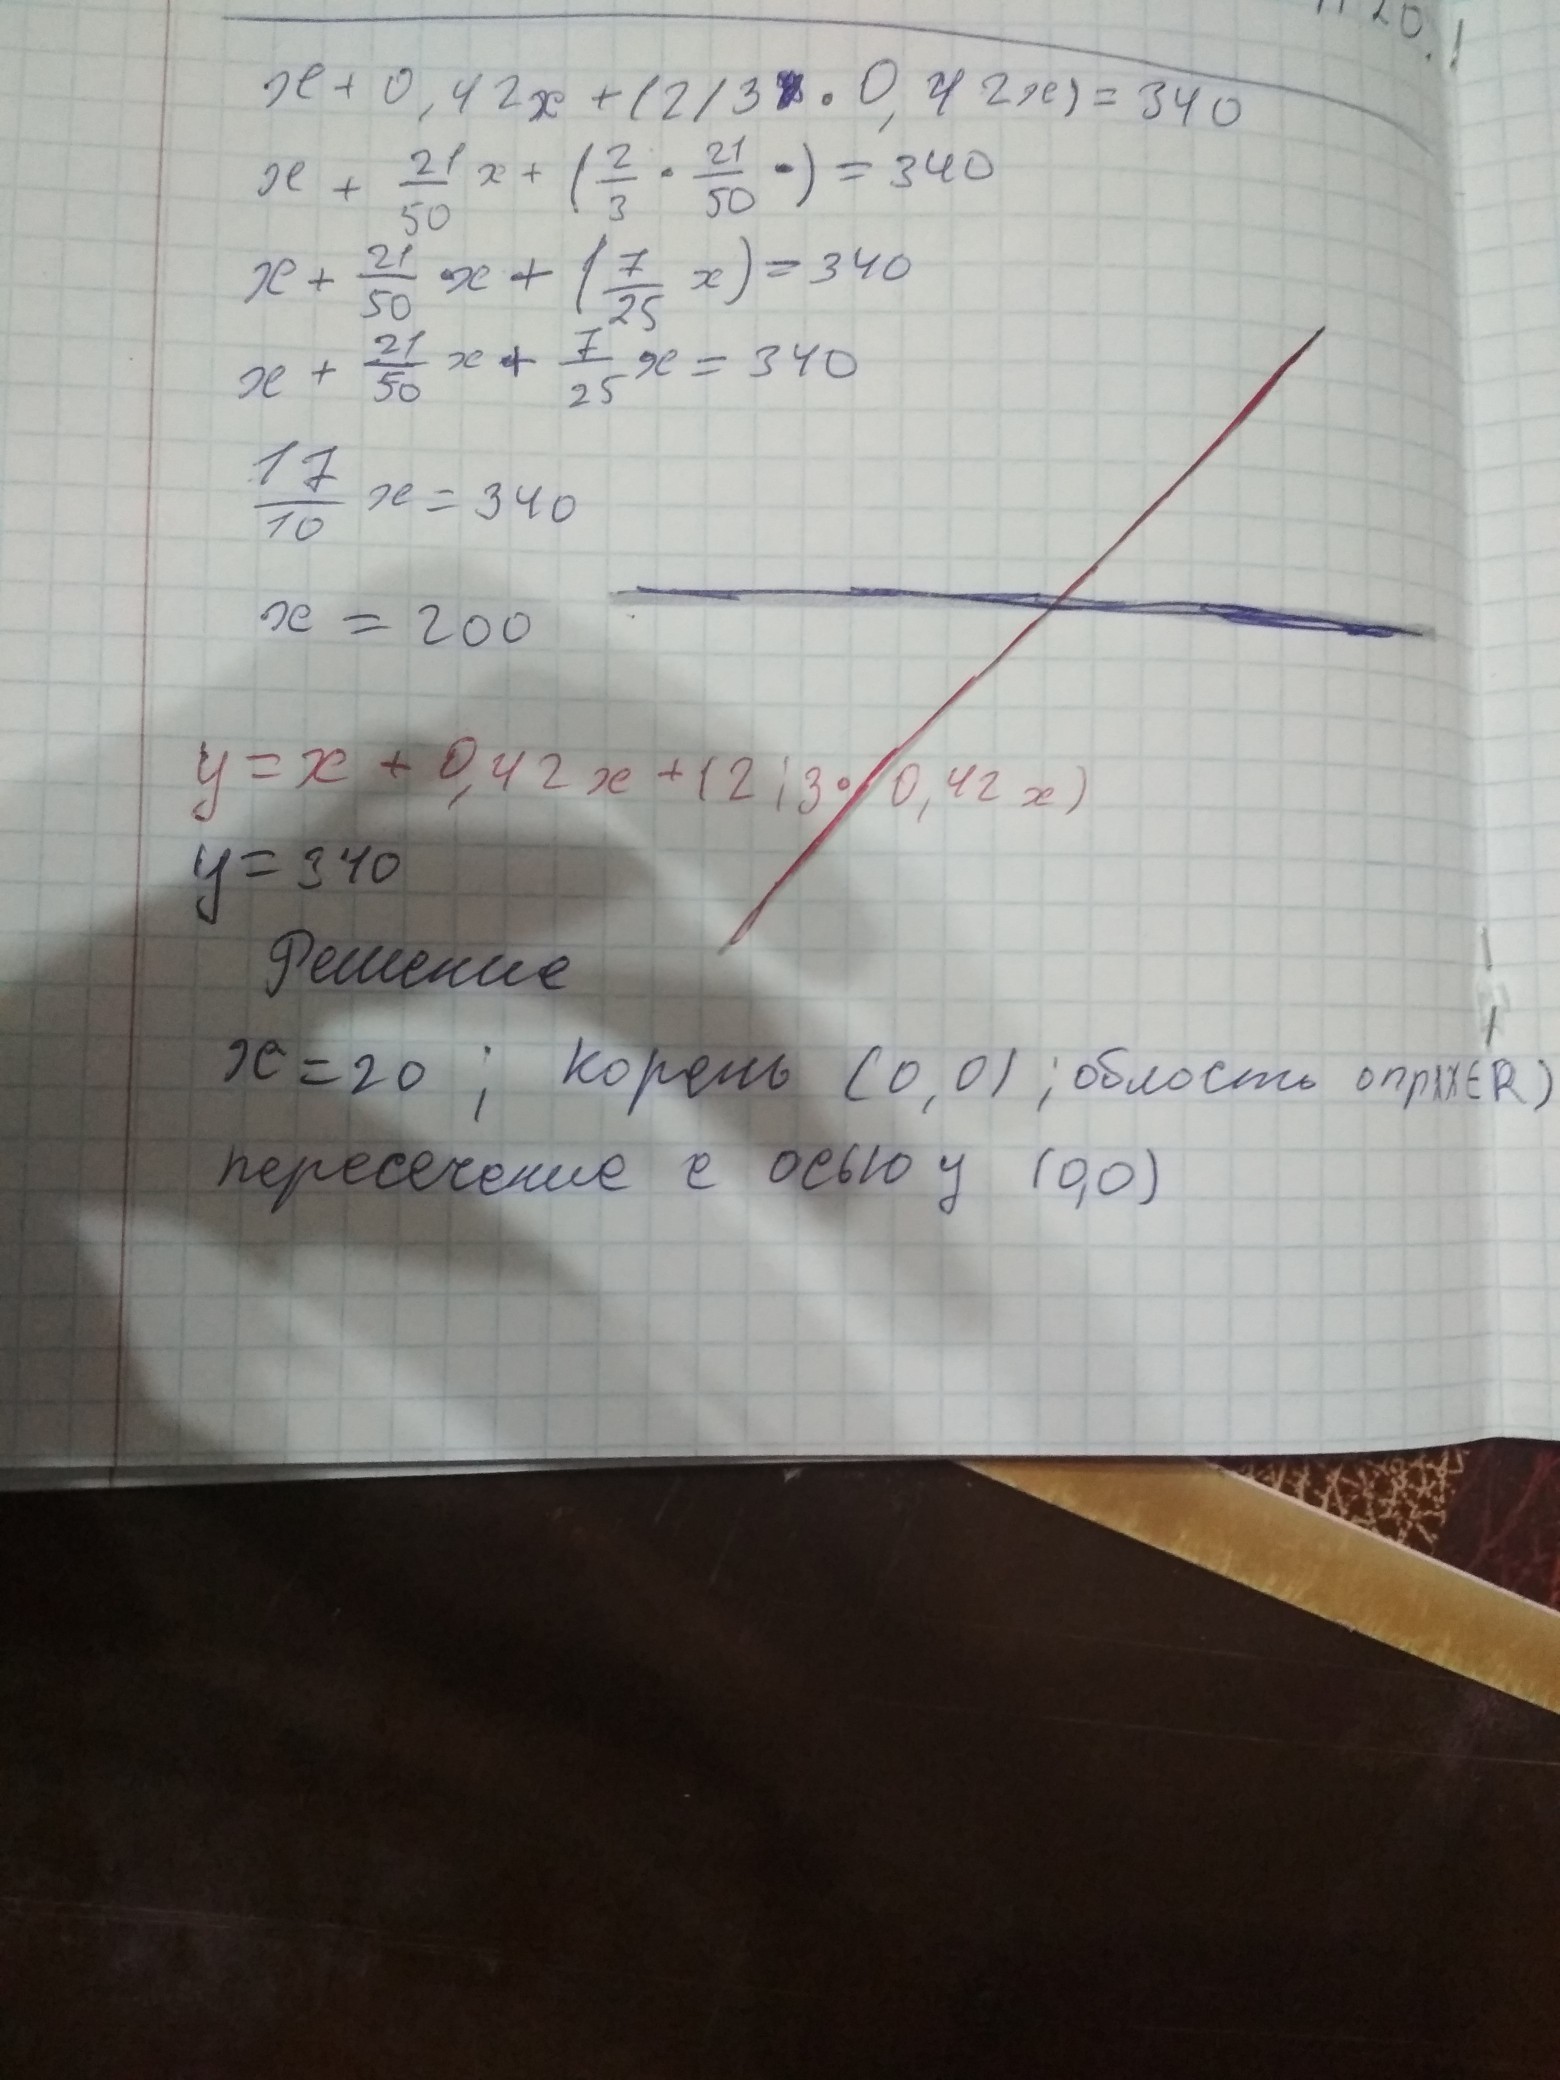 №20.1
x + 0,42x + (2/3 · 0,42x) = 340
x + 21/50 x + (2/3 · 21/50 ·) = 340
x + 21/50 · x + (7/25 x) = 340
x + 21/50 x + 7/25 x = 340
17/10 x = 340
x = 200
y = x + 0,42x + (2;3 · 0,42x)
y = 340
Решение
x = 20 ; корень (0,0) ; область опр(x∈R)
пересечение с осью y (0,0)